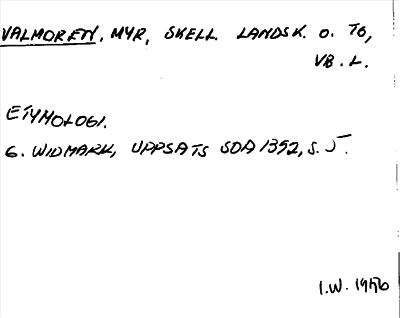 VALMORETY, MYR, SKELL. LANDSK. O. TG,
VB. L.
ETYMOLOGI.
G. WIDMARK, UPPSATS SOA 1352, S. 5.
I.W. 1956